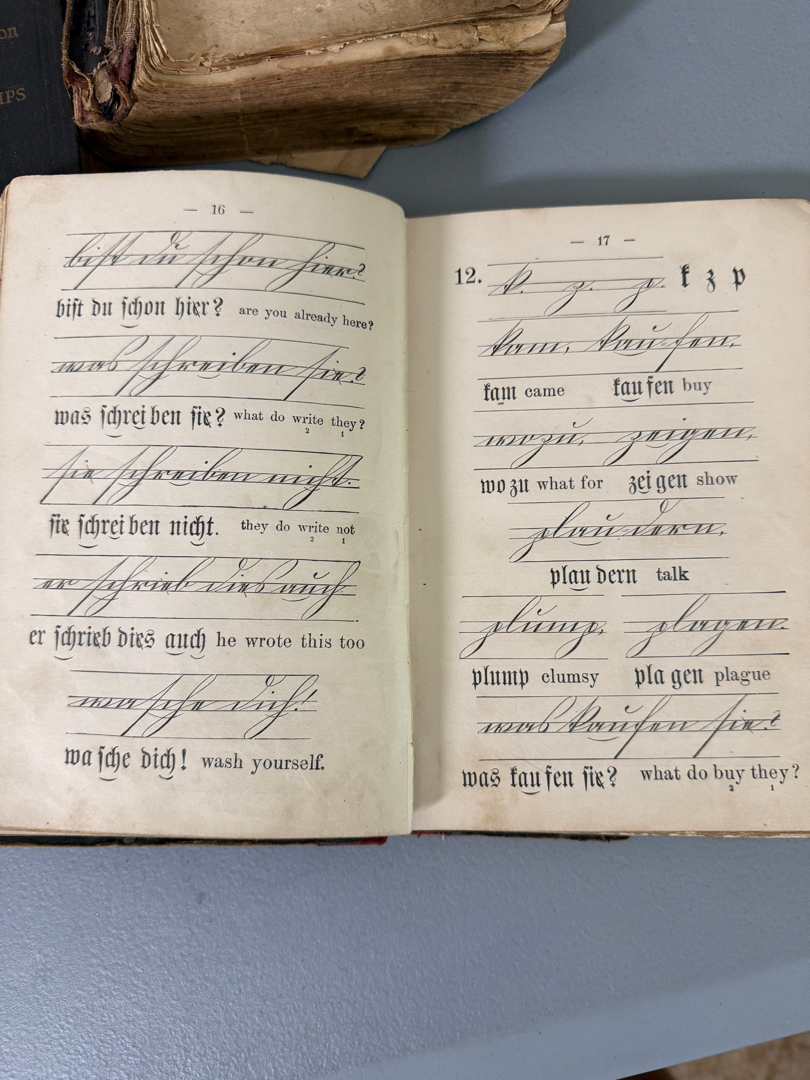 on
IPS
— 16 —
bist du schon hier?
bist du schon hier? are you already here?
was schreiben sie?
was schrei ben sie? what do write they?
2 1
sie schreiben nicht.
sie schrei ben nicht. they do write not
2 1
er schrieb dies auch
er schrieb dies auch he wrote this too
wasche dich!
wa sche dich! wash yourself.
— 17 —
12. k. z. p. k z p
kam, kau-fen,
kam came kau fen buy
wozu, zeigen,
wo zu what for zei gen show
plau-dern,
plau dern talk
plump, plagen.
plump clumsy pla gen plague
was kaufen sie?
was kau fen sie? what do buy they?
2 1